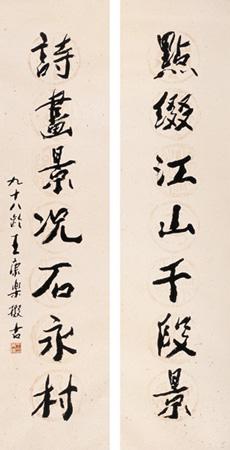 點綴江山千段景
詩畫景況石永村
九十八齡王康樂撥古